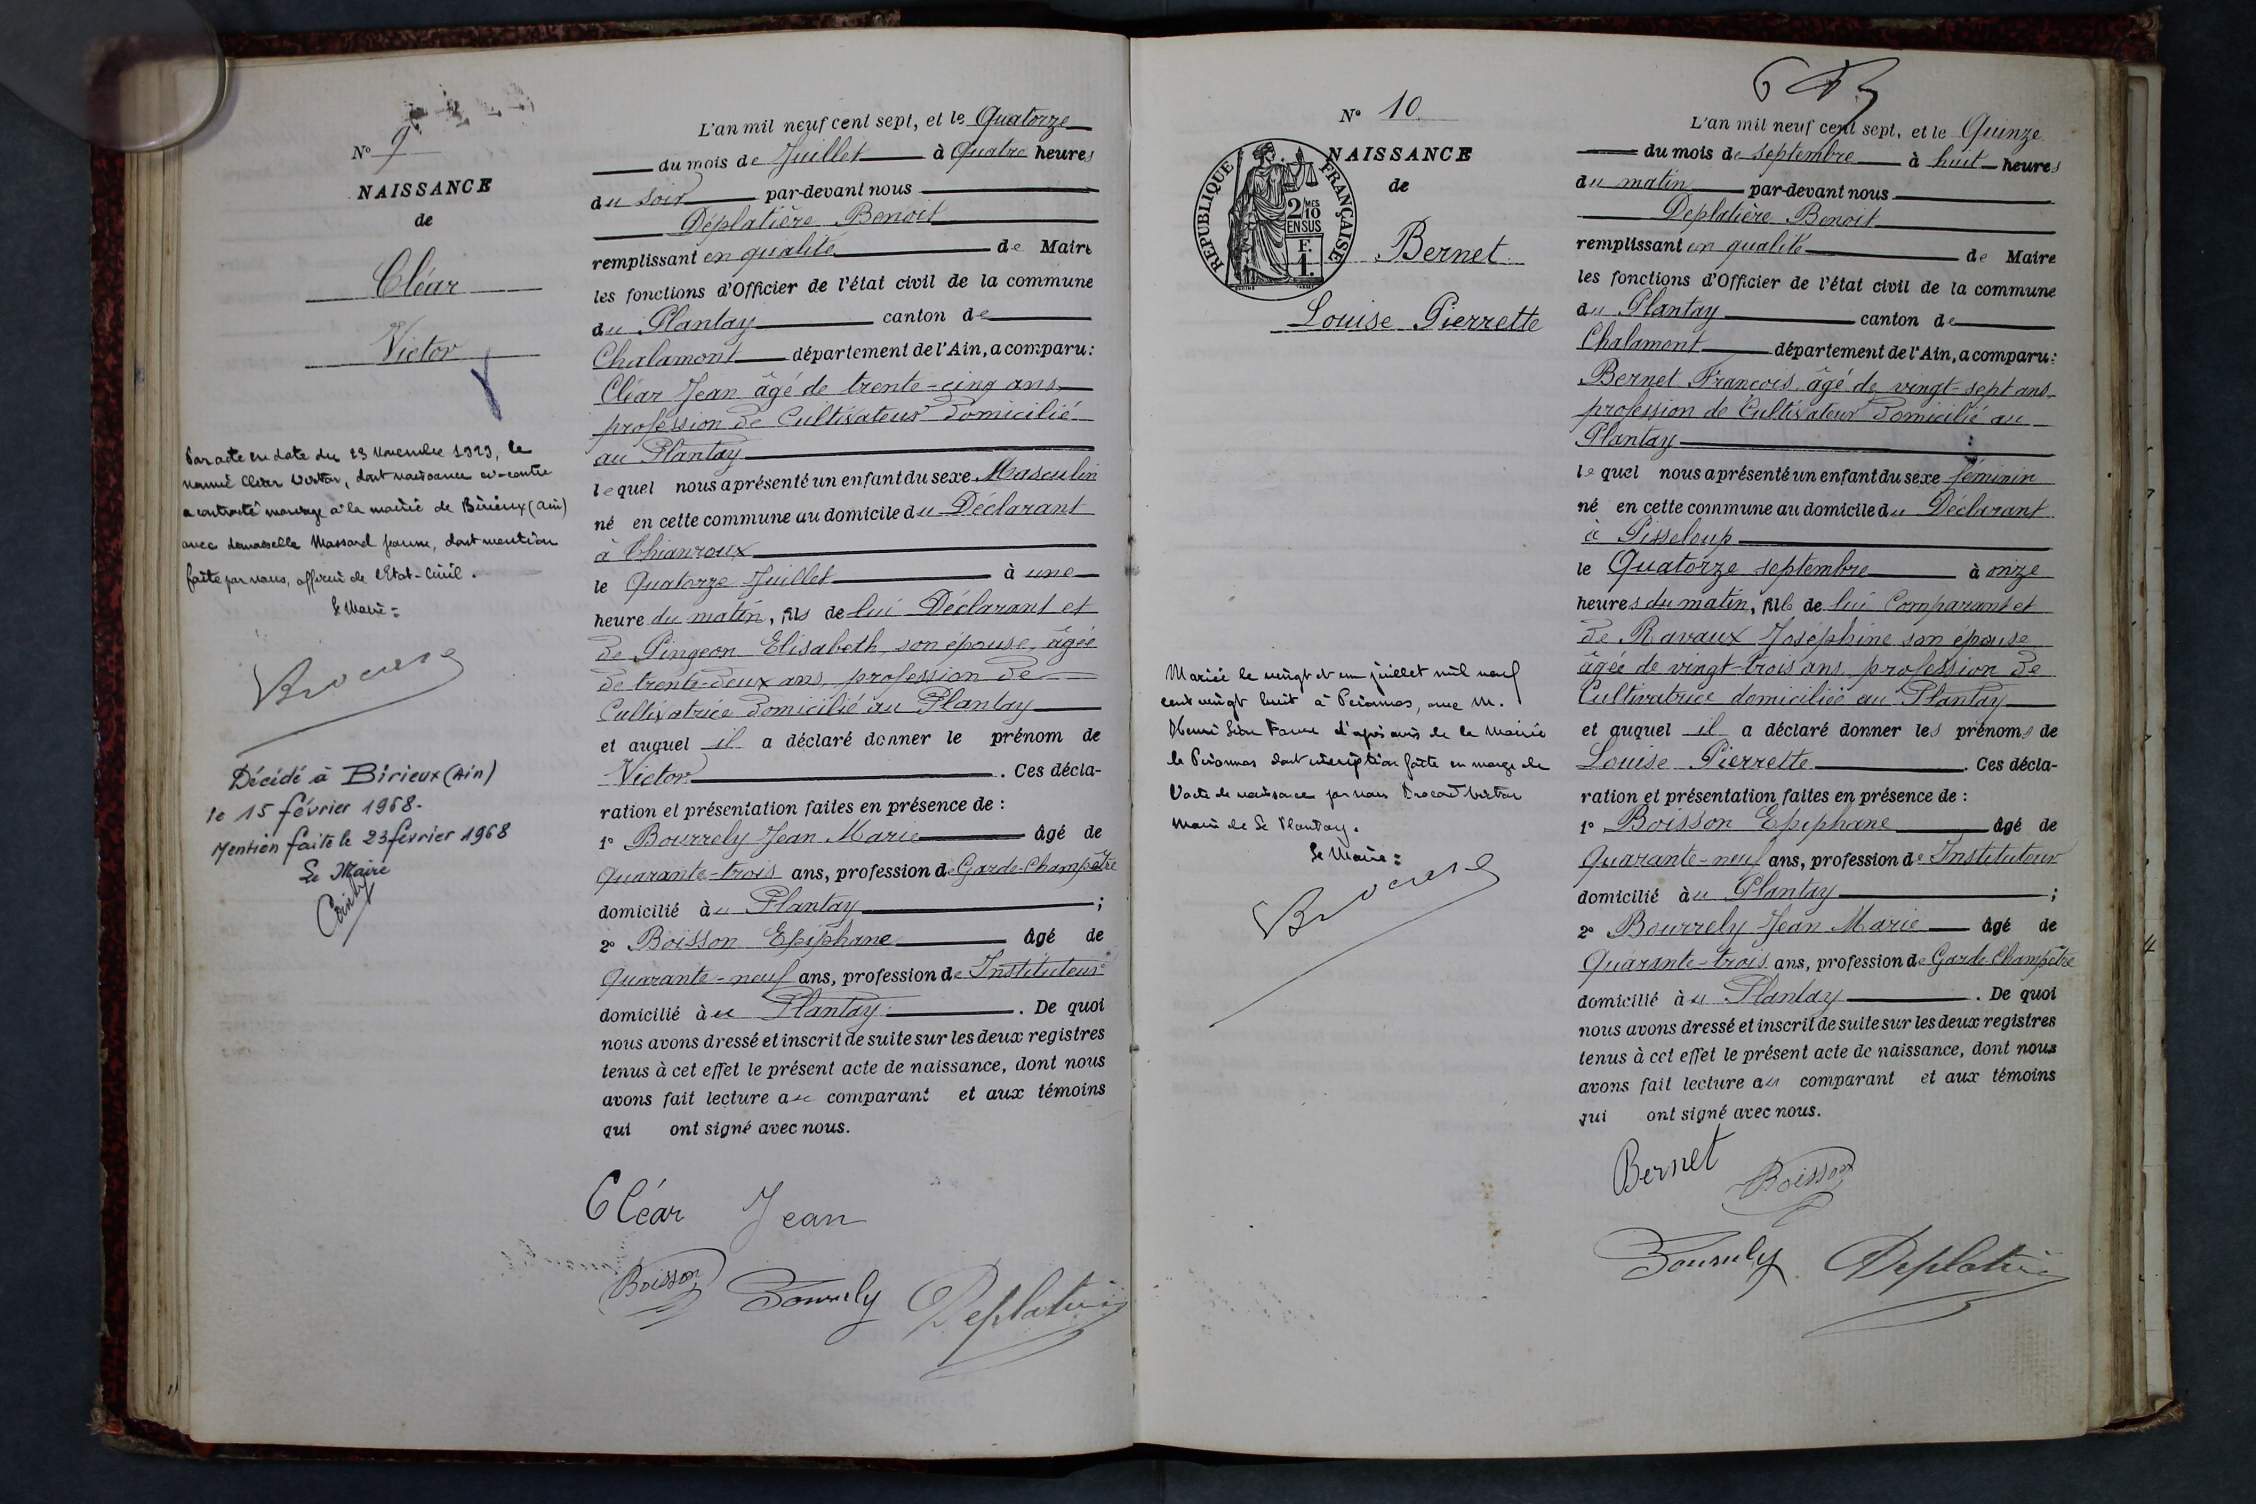 N° 9
NAISSANCE
de
Cléar
Victor
Par acte en date du 23 Novembre 1929, le
nommé Cléar Victor, dont naissance ci-contre
a contracté mariage à la mairie de Birieux (Ain)
avec demoiselle Massard Jeanne, dont mention
faite par nous, officier de l'Etat-Civil.
Le Maire =
Décédé à Birieux (Ain)
le 15 février 1968.
Mention faite le 23 février 1968
Le Maire
L'an mil neuf cent sept, et le Quatorze
du mois de Juillet à Quatre heures
du soir par-devant nous
Déplatière Benoit
remplissant en qualité de Maire
les fonctions d'Officier de l'état civil de la commune
du Plantay canton de
Chalamont département de l'Ain, a comparu :
Cléar Jean âgé de trente-cinq ans
profession de Cultivateur domicilié
au Plantay
lequel nous a présenté un enfant du sexe Masculin
né en cette commune au domicile du Déclarant
à Chianroux
le Quatorze Juillet à une
heure du matin, fils de lui Déclarant et
de Pingeon Elisabeth son épouse, âgée
de trente-deux ans, profession de
Cultivatrice domicilié au Plantay
et auquel il a déclaré donner le prénom de
Victor . Ces décla-
ration et présentation faites en présence de :
1° Bourrely Jean Marie âgé de
Quarante-trois ans, profession de Garde-Champêtre
domicilié à u Plantay ;
2° Boisson Epiphane âgé de
Quarante-neuf ans, profession de Instituteur
domicilié à u Plantay . De quoi
nous avons dressé et inscrit de suite sur les deux registres
tenus à cet effet le présent acte de naissance, dont nous
avons fait lecture au comparant et aux témoins
qui ont signé avec nous.
Cléar Jean
Boisson Bourrely Deplatière
N° 10
NAISSANCE
de
Bernet
Louise Pierrette
RÉPUBLIQUE FRANÇAISE
2/10 MES
EN SUS
F.
1.
Mariée le vingt et un juillet mil neuf
cent vingt huit à Péronnas, avec M.
Henri Léon Favre d'après avis de la Mairie
de Péronnas dont inscription faite en marge de
l'acte de naissance par nous Brocard Victor
Maire de Le Plantay.
Le Maire :
L'an mil neuf cent sept, et le Quinze
du mois de septembre à huit heures
du matin par-devant nous
Deplatière Benoit
remplissant en qualité de Maire
les fonctions d'Officier de l'état civil de la commune
du Plantay canton de
Chalamont département de l'Ain, a comparu :
Bernet Francois âgé de vingt-sept ans
profession de Cultivateur domicilié au
Plantay ;
lequel nous a présenté un enfant du sexe féminin
né en cette commune au domicile du Déclarant
à Pisseloup
le Quatorze septembre à onze
heures du matin, fille de lui Comparant et
de Ravaux Joséphine son épouse
âgée de vingt-trois ans profession de
Cultivatrice domiciliée au Plantay
et auquel il a déclaré donner les prénoms de
Louise Pierrette . Ces décla-
ration et présentation faites en présence de :
1° Boisson Epiphane âgé de
Quarante-neuf ans, profession de Instituteur
domicilié à u Plantay ;
2° Bourrely Jean Marie âgé de
Quarante-trois ans, profession de Garde Champêtre
domicilié à u Plantay . De quoi
nous avons dressé et inscrit de suite sur les deux registres
tenus à cet effet le présent acte de naissance, dont nous
avons fait lecture au comparant et aux témoins
qui ont signé avec nous.
Bernet Boisson
Bourrely Deplatière